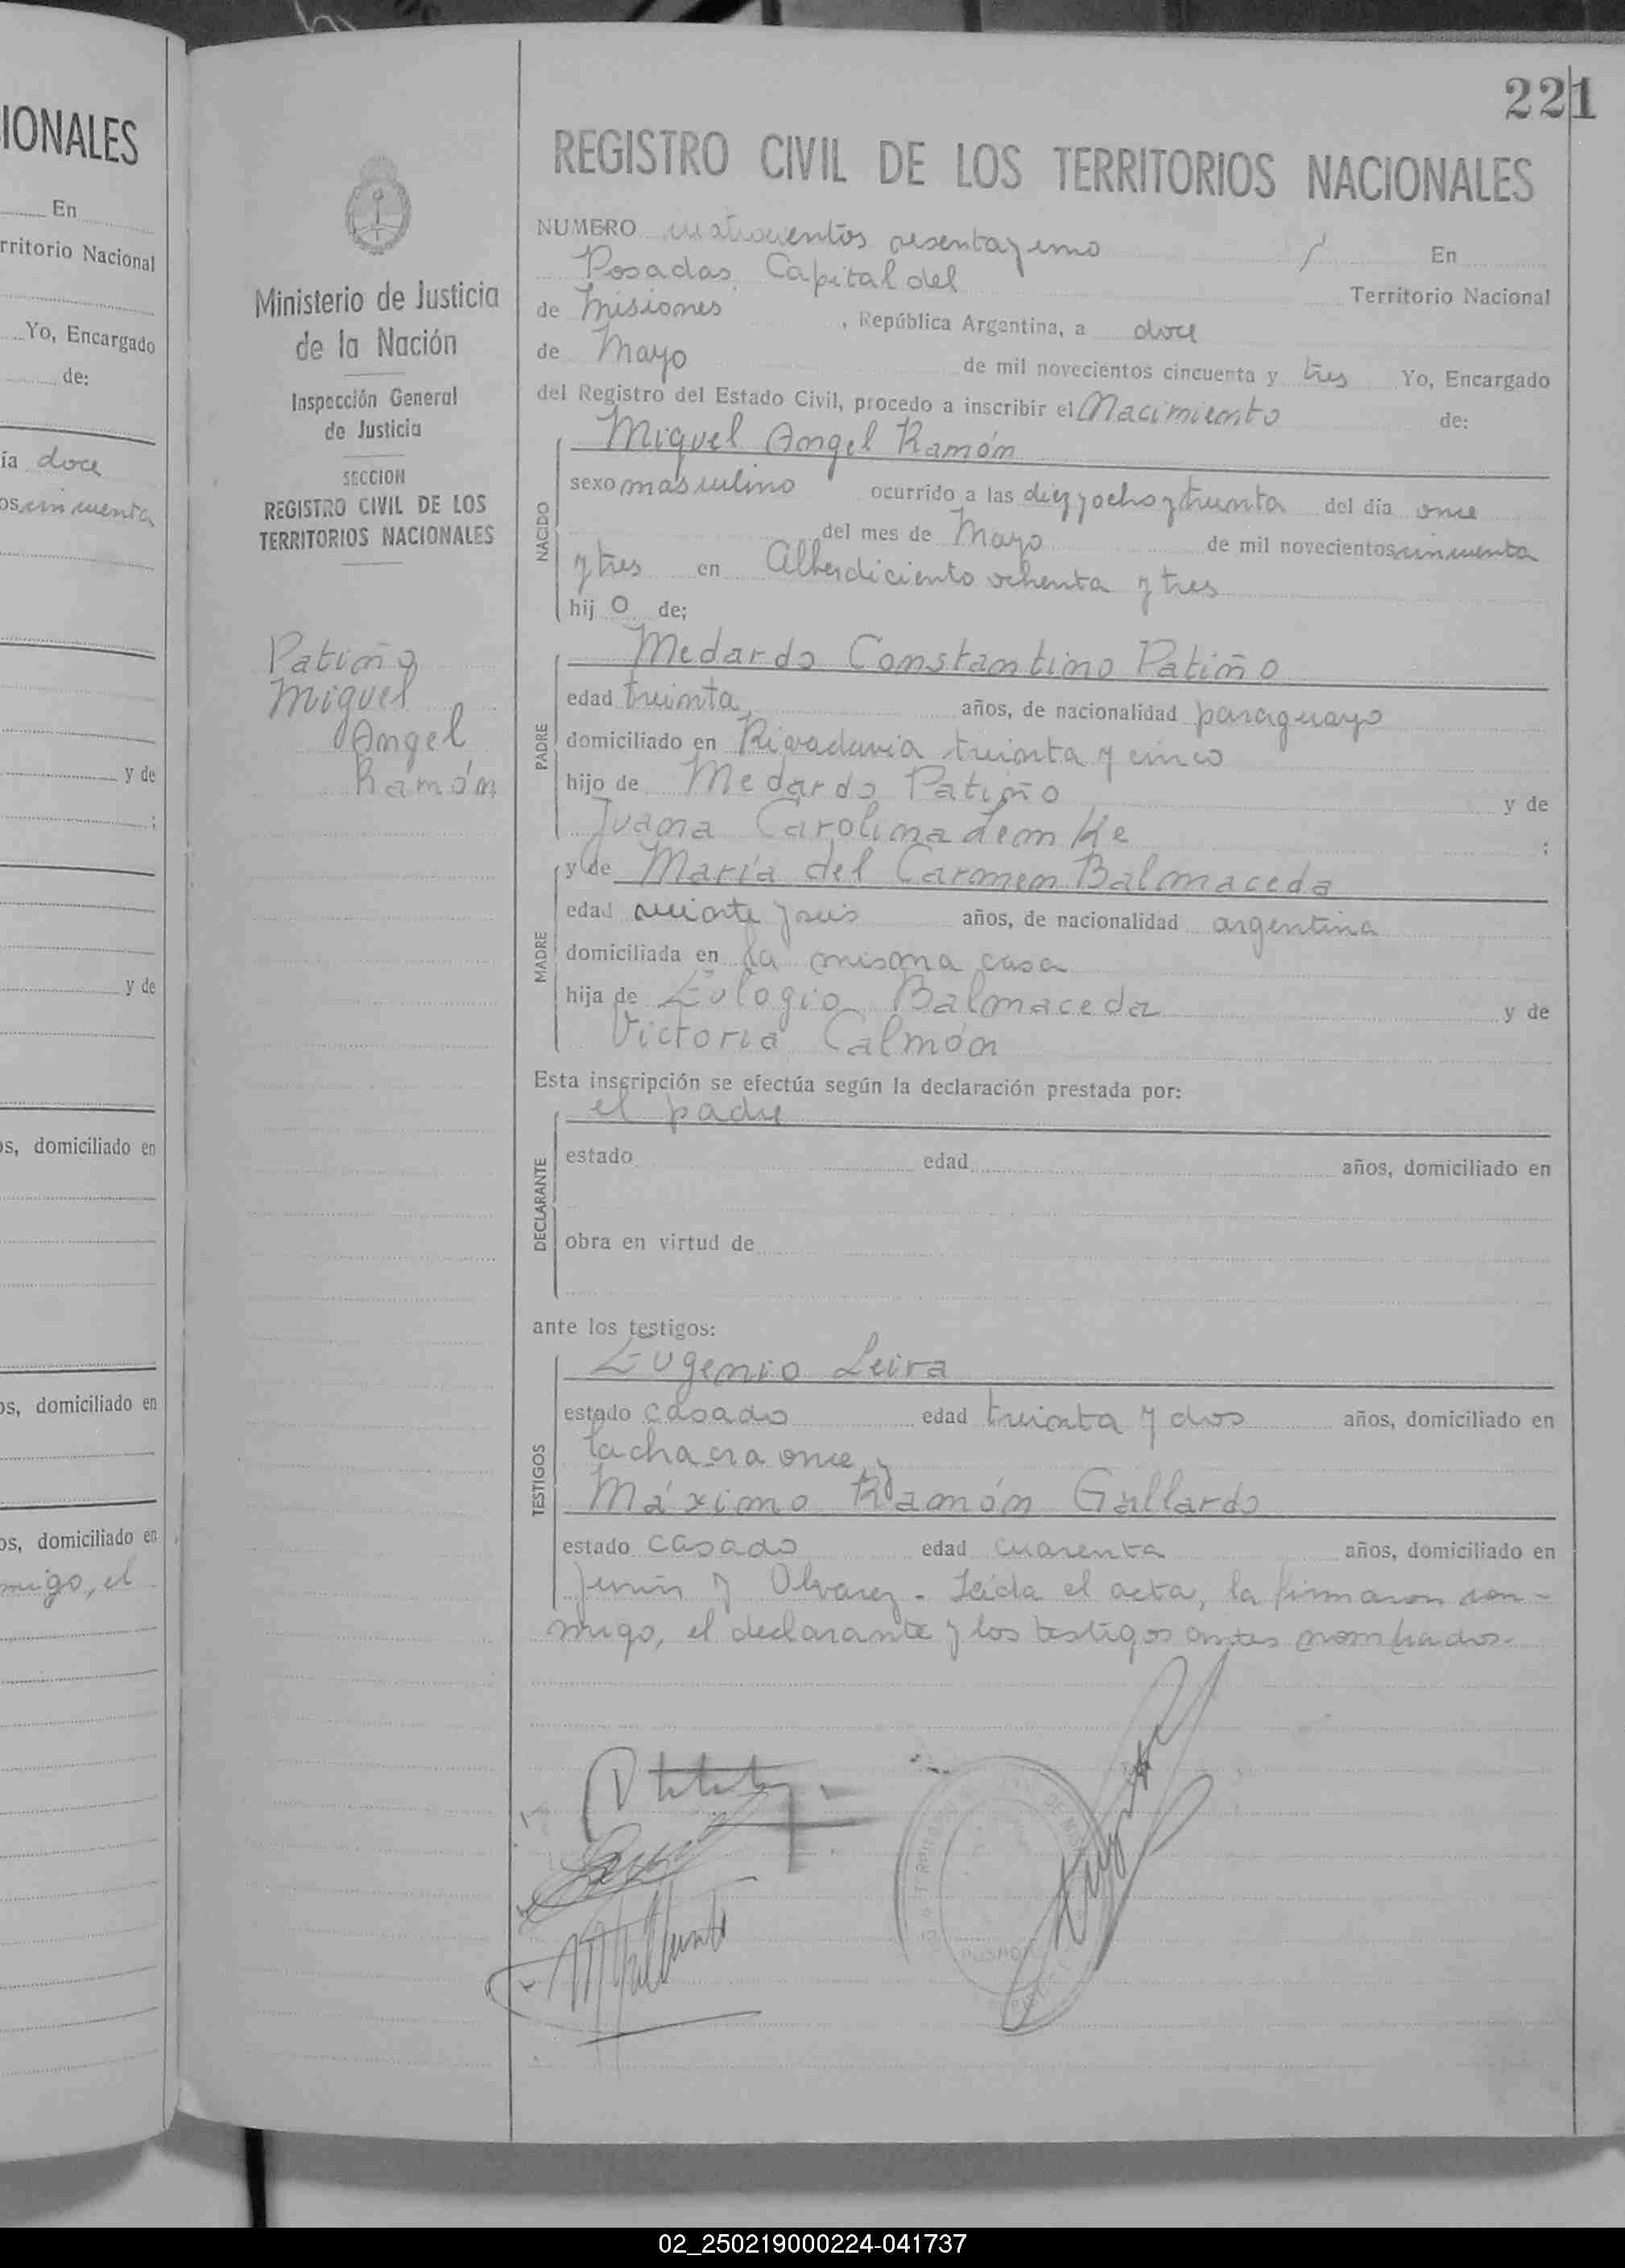 221
IONALES
En
rritorio Nacional
Yo, Encargado
de:
ía doce
os cincuenta
y de
;
y de
os, domiciliado en
os, domiciliado en
os, domiciliado en
migo, el
Ministerio de Justicia
de la Nación
Inspección General
de Justicia
SECCION
REGISTRO CIVIL DE LOS
TERRITORIOS NACIONALES
Patiño
Miguel
Angel
Ramón
REGISTRO CIVIL DE LOS TERRITORIOS NACIONALES
NUMERO cuatrocientos sesenta y uno / En
Posadas, Capital del Territorio Nacional
de Misiones, República Argentina, a doce
de Mayo de mil novecientos cincuenta y tres Yo, Encargado
del Registro del Estado Civil, procedo a inscribir el Nacimiento de:
NACIDO
Miguel Angel Ramón
sexo masculino ocurrido a las diez y ocho y treinta del día once
del mes de Mayo de mil novecientos cincuenta
y tres en Alberdi ciento ochenta y tres
hij o de;
PADRE
Medardo Constantino Patiño
edad treinta años, de nacionalidad paraguayo
domiciliado en Rivadavia treinta y cinco
hijo de Medardo Patiño y de
Juana Carolina Lemke ;
MADRE
y de María del Carmen Balmaceda
edad veinte y seis años, de nacionalidad argentina
domiciliada en la misma casa
hija de Eulogio Balmaceda y de
Victoria Calmón
Esta inscripción se efectúa según la declaración prestada por:
DECLARANTE
el padre
estado edad años, domiciliado en
obra en virtud de
ante los testigos:
TESTIGOS
Eugenio Leiva
estado casado edad treinta y dos años, domiciliado en
la chacra once y
Máximo Ramón Gallardo
estado casado edad cuarenta años, domiciliado en
Junín y Olvarez - Leída el acta, la firmaron con-
migo, el declarante y los testigos antes nombrados.-
02_250219000224-041737